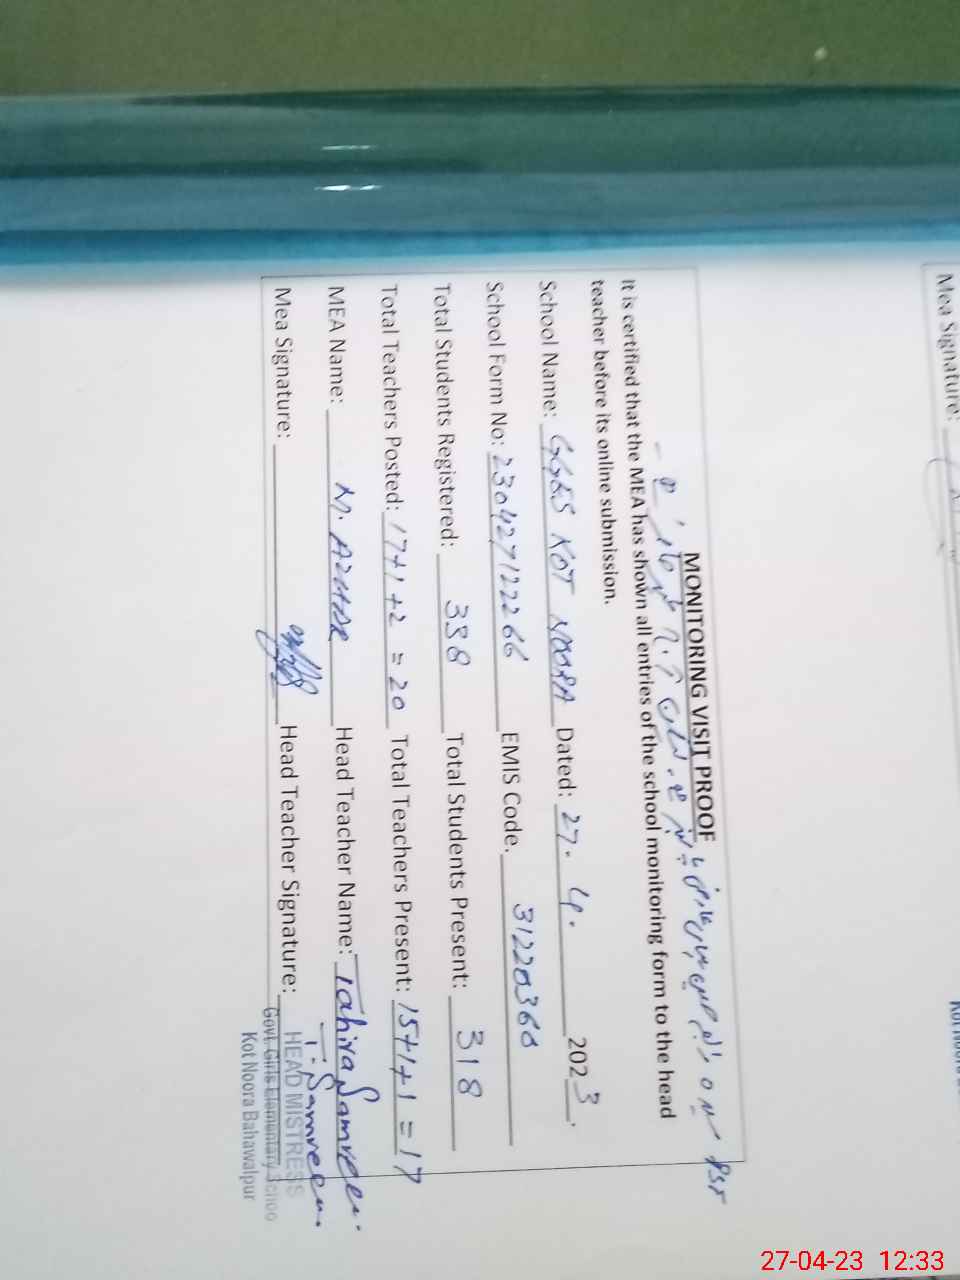 Mea Signature:
MONITORING VISIT PROOF
It is certified that the MEA has shown all entries of the school monitoring form to the head
teacher before its online submission.
School Name: GGES KOT NOORA Dated: 27. 4. 2023.
School Form No: 230427122266 EMIS Code.
Total Students Registered: 338 Total Students Present: 318
Total Teachers Posted: 17+1+2 = 20 Total Teachers Present: 15+1+1 = 17
MEA Name: M. AZHAR Head Teacher Name: Tahira Samreen.
Mea Signature: Head Teacher Signature: T. Samreen
HEAD MISTRESS
Govt. Girls Elementary Schoo
Kot Noora Bahawalpur
27-04-23 12:33